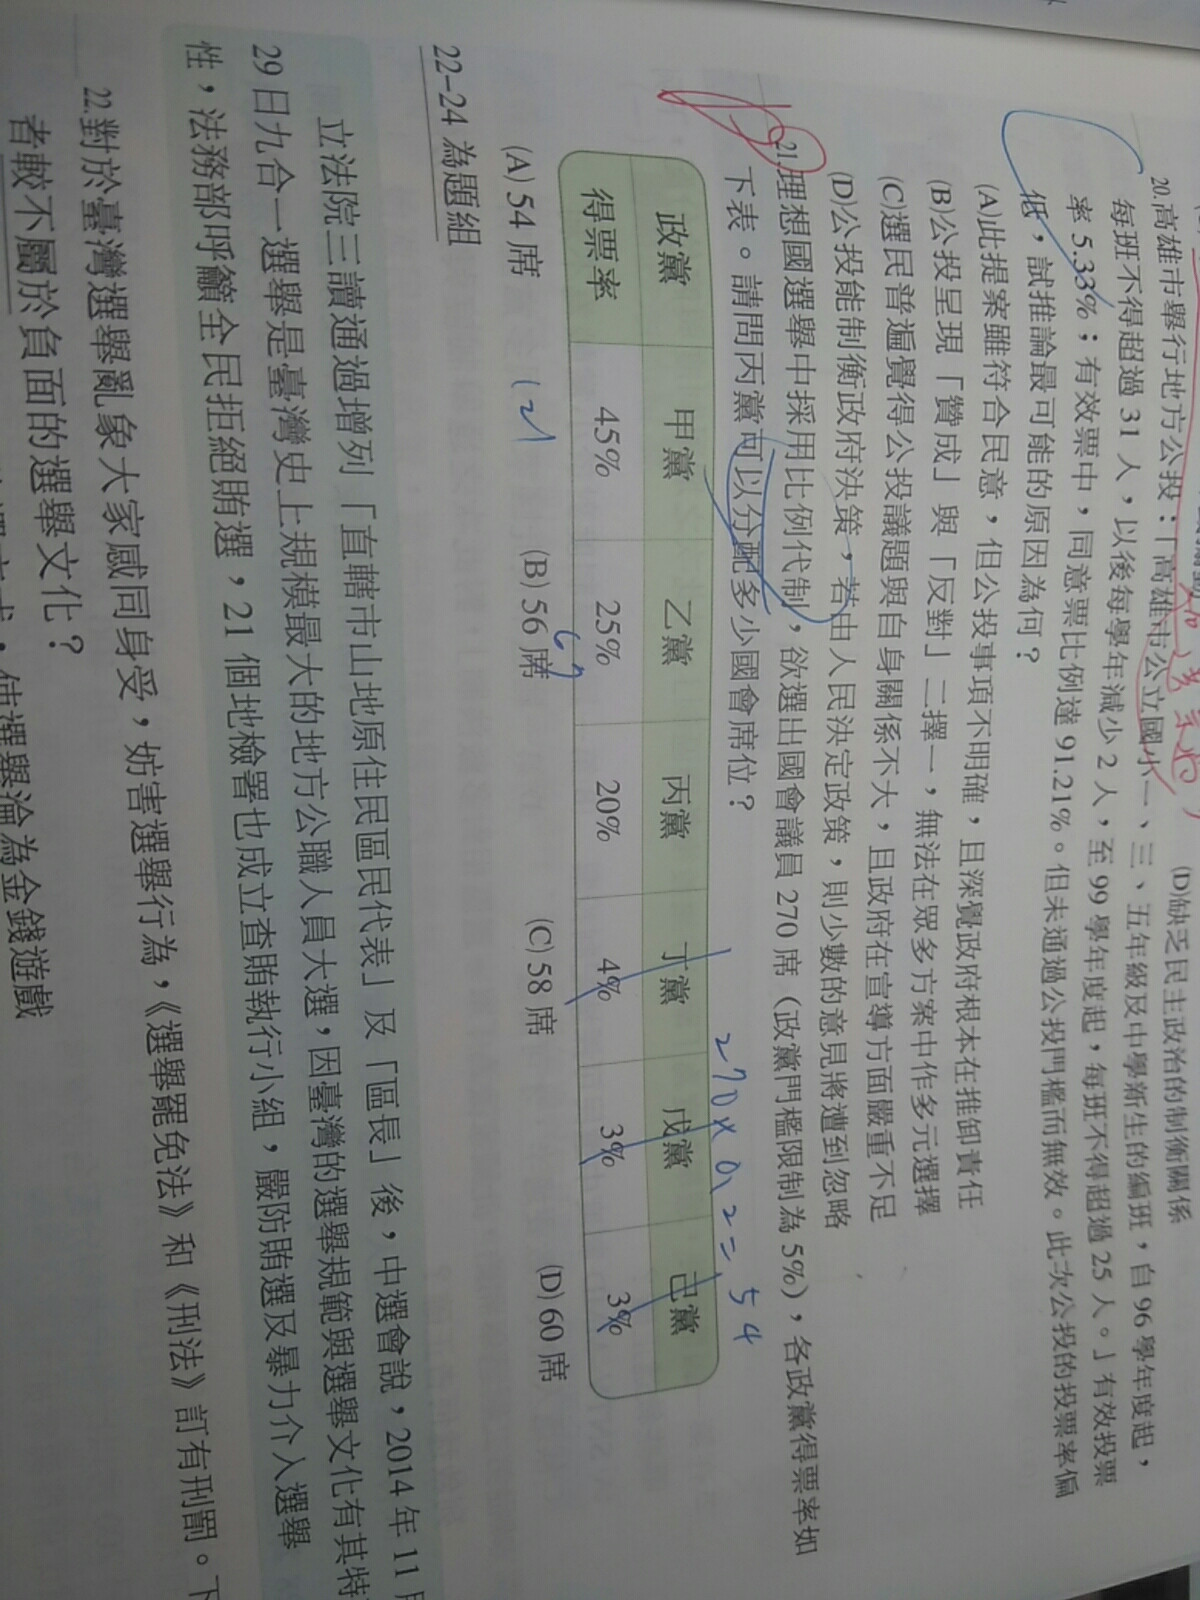 (D)缺乏民主政治的制衡關係
20.高雄市舉行地方公投：「高雄市公立國小一、三、五年級及中學新生的編班，自 96 學年度起，
每班不得超過 31 人，以後每學年減少 2 人，至 99 學年度起，每班不得超過 25 人。」有效投票
率 5.33%；有效票中，同意票比例達 91.21%。但未通過公投門檻而無效。此次公投的投票率偏
低，試推論最可能的原因為何？
(A)此提案雖符合民意，但公投事項不明確，且深覺政府根本在推卸責任
(B)公投呈現「贊成」與「反對」二擇一，無法在眾多方案中作多元選擇
(C)選民普遍覺得公投議題與自身關係不大，且政府在宣導方面嚴重不足
(D)公投能制衡政府決策，若由人民決定政策，則少數的意見將遭到忽略
21.理想國選舉中採用比例代制，欲選出國會議員 270 席（政黨門檻限制為 5%），各政黨得票率如
下表。請問丙黨可以分配多少國會席位？
270×0.2=54
政黨 甲黨 乙黨 丙黨 丁黨 戊黨 己黨
得票率 45% 25% 20% 4% 3% 3%
(A) 54 席 (B) 56 席 (C) 58 席 (D) 60 席
22-24 為題組
立法院三讀通過增列「直轄市山地原住民區民代表」及「區長」後，中選會說，2014 年 11 月
29 日九合一選舉是臺灣史上規模最大的地方公職人員大選，因臺灣的選舉規範與選舉文化有其特
性，法務部呼籲全民拒絕賄選，21 個地檢署也成立查賄執行小組，嚴防賄選及暴力介入選舉
22.對於臺灣選舉亂象大家感同身受，妨害選舉行為，《選舉罷免法》和《刑法》訂有刑罰。下
者較不屬於負面的選舉文化？
使選舉淪為金錢遊戲